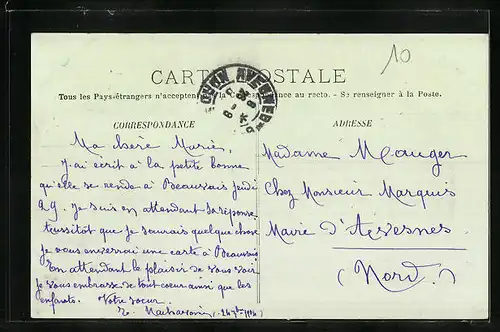 10
CARTE POSTALE
Tous les Pays-étrangers n'acceptent la Correspondance au recto. - Se renseigner à la Poste.
CORRESPONDANCE
Ma chere Marie,
J'ai écrit à la petite bonne
qu'elle se rende à Beauvais jeudi
29. Je suis en attendant sa réponse
Aussitot que je saurais quelque chose
Je vous enverrai une carte à Beauvais
En attendant le plaisir de vous voir
Je vous embrasse de tout coeur ainsi que les
enfants. Votre soeur.
ADRESSE
Madame Mauger
Chez Monsieur Marquis
Mairie d'Avesnes
(Nord.)